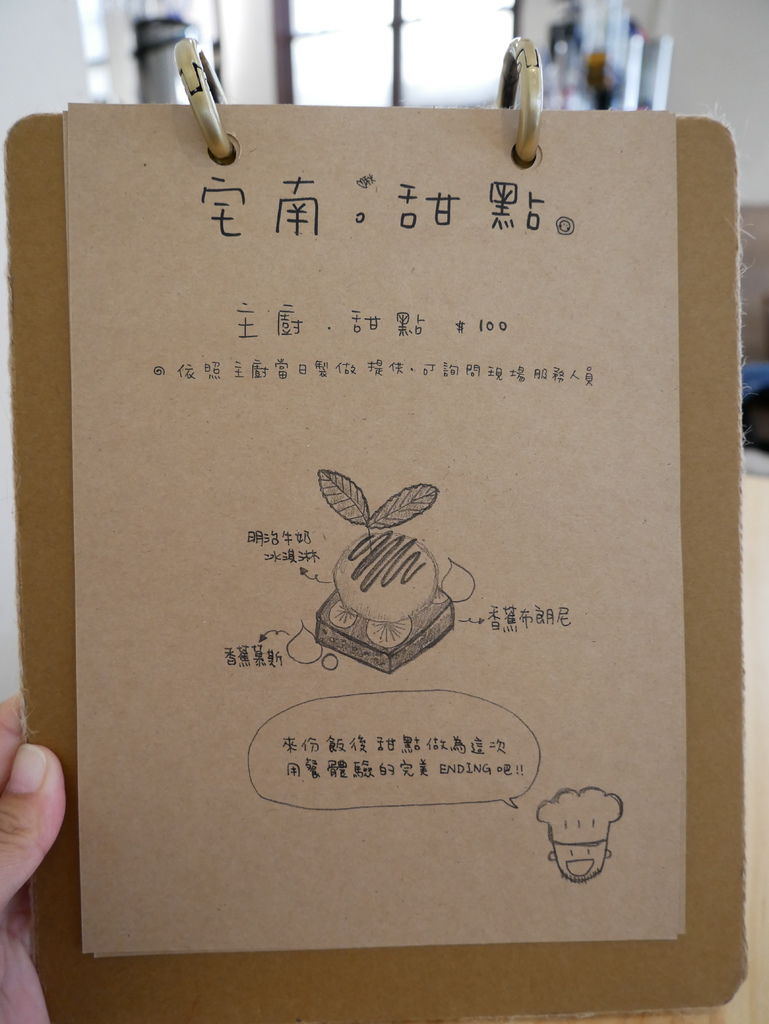 宅南。甜點
主廚．甜點 $ 100
◎ 依照主廚當日製做提供，可詢問現場服務人員
明治牛奶
冰淇淋
香蕉布朗尼
香蕉慕斯
來份飯後甜點做為這次
用餐體驗的完美 ENDING 吧!!